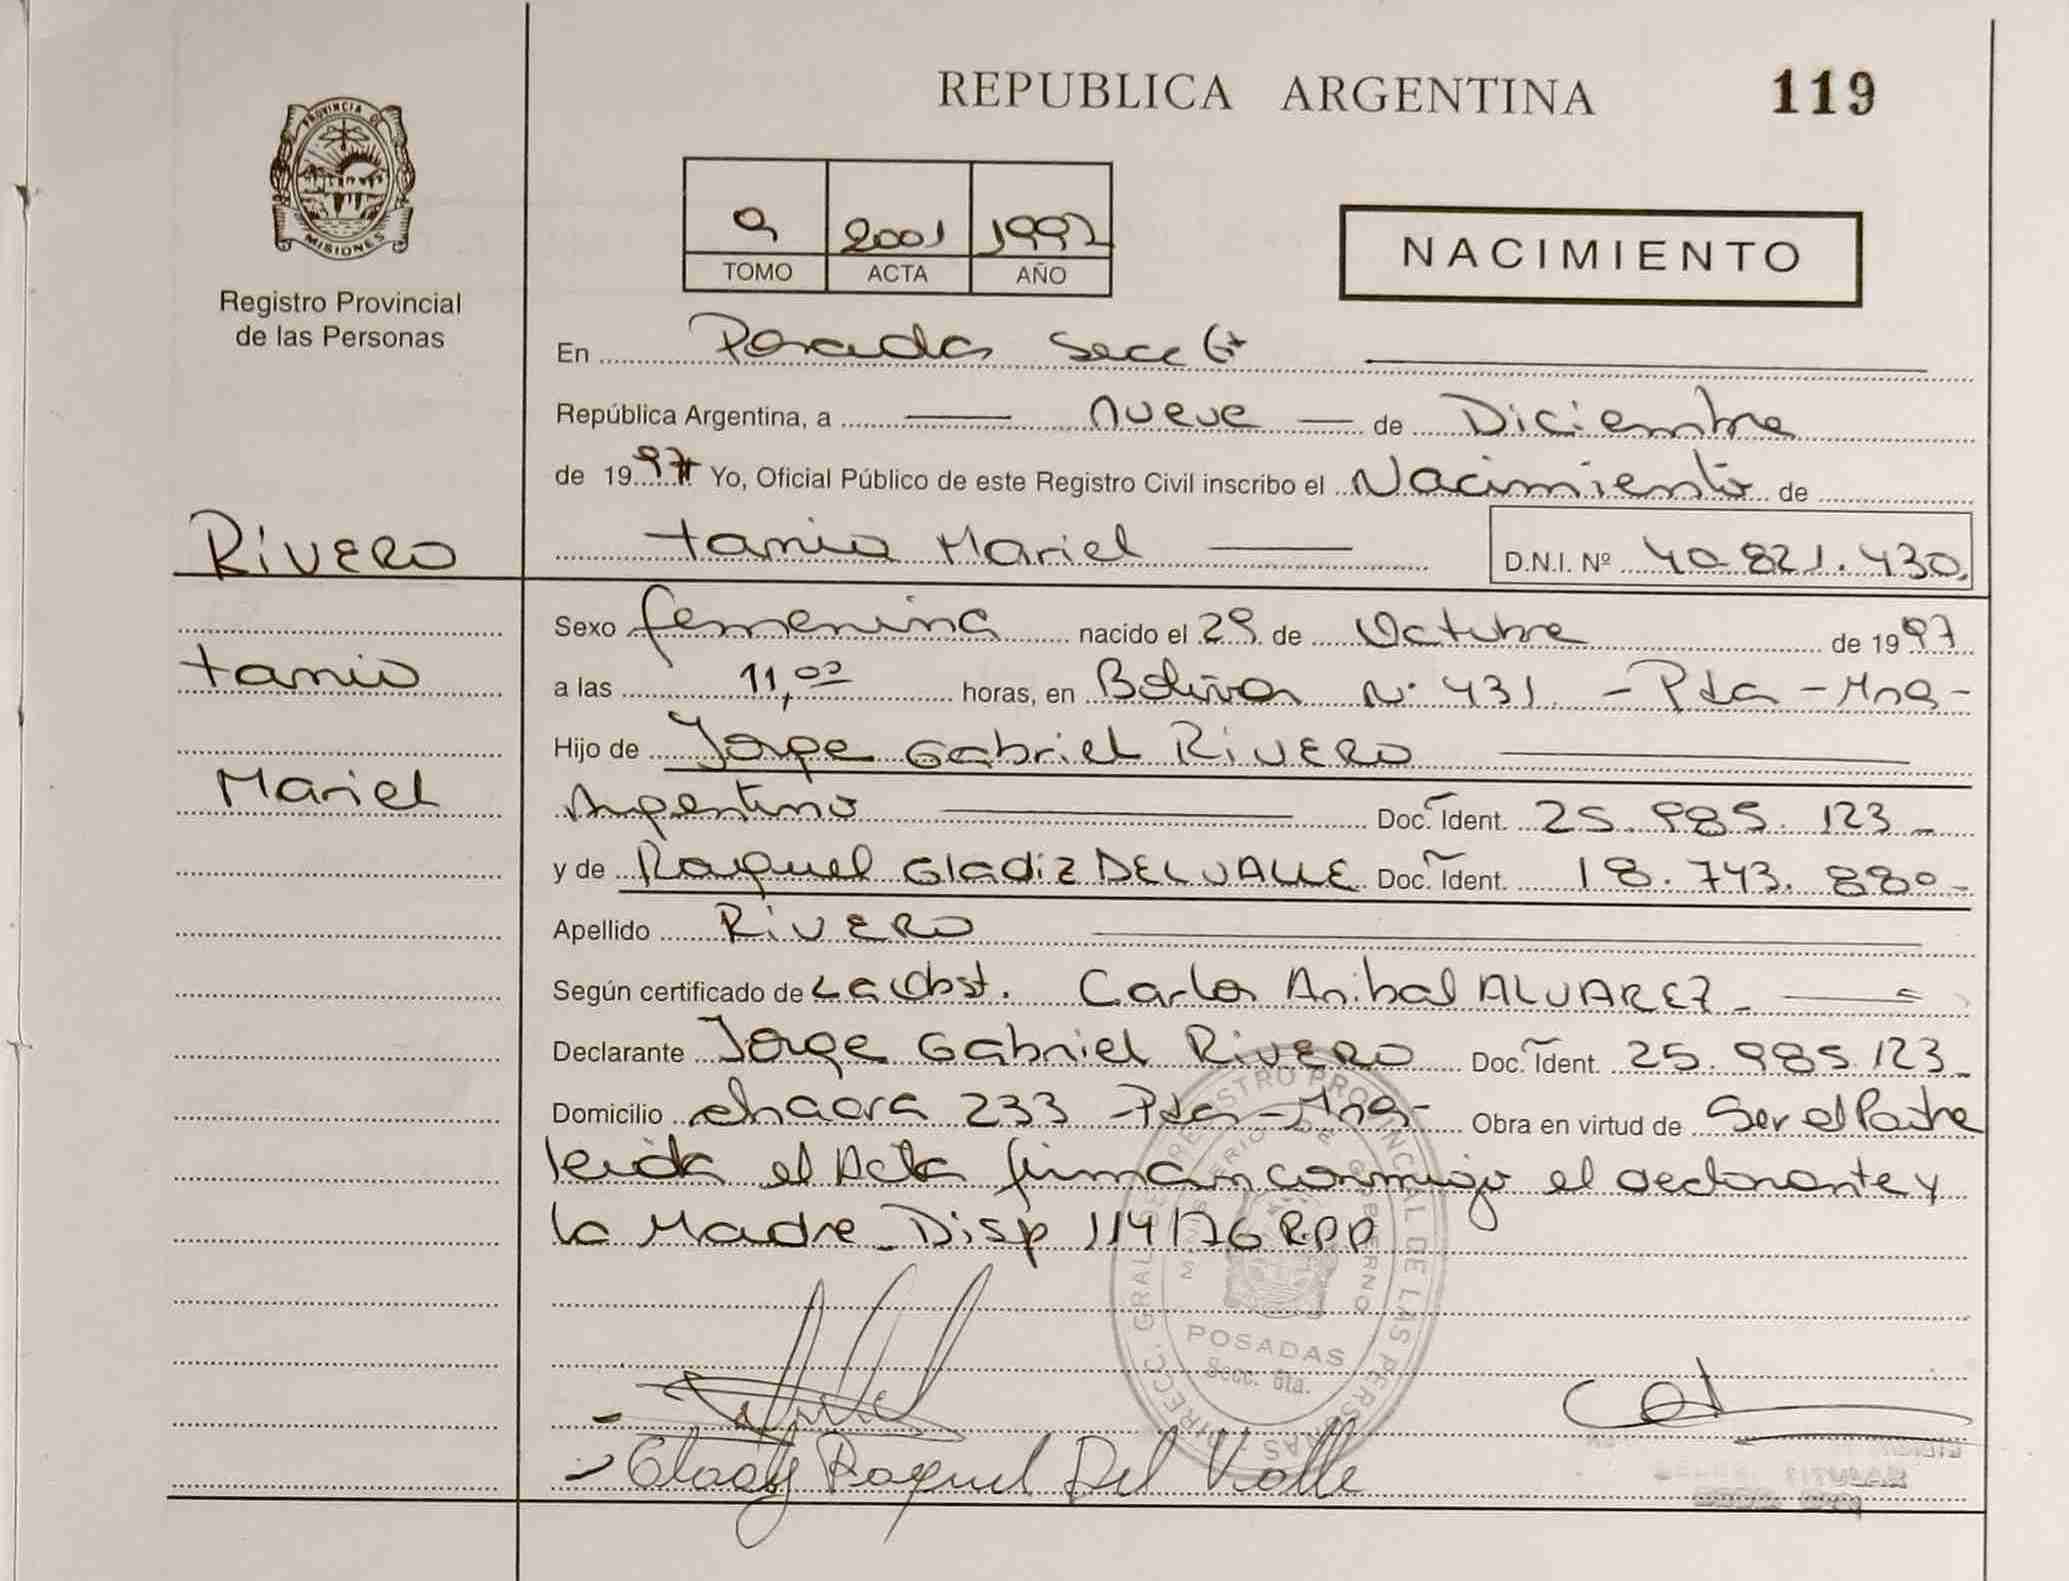 REPUBLICA ARGENTINA 119
PROVINCIA DE MISIONES
Registro Provincial
de las Personas
9 2001 1997
TOMO ACTA AÑO
NACIMIENTO
En Posadas Secc 6ta
República Argentina, a nueve de Diciembre
de 1997 Yo, Oficial Público de este Registro Civil inscribo el Nacimiento de
RIVERO
Tania Mariel D.N.I. Nº 40.821.430.
Sexo femenina nacido el 29 de Octubre de 1997
Tania
a las 11,00 horas, en Bolivar N° 431 - Pdas - Mnes -
Hijo de Jorge Gabriel RIVERO
Mariel
Argentino Doc. Ident. 25.985.123 -
y de Raquel Gladiz DEL VALLE Doc. Ident. 18.743.880 -
Apellido RIVERO
Según certificado de La Obst. Carlos Anibal ALVAREZ -
Declarante Jorge Gabriel RIVERO Doc. Ident. 25.985.123 -
Domicilio chacra 233 - Pdas - Mnes - Obra en virtud de Ser el Padre
leida el Acta firman conmigo el declarante y
la Madre - Disp 114/76 RPP
DIRECC. GRAL. DE REGISTRO PROVINCIAL DE LAS PERSONAS
MINISTERIO DE GOBIERNO
POSADAS
Secc. 6ta.
- Glady Raquel Del Valle